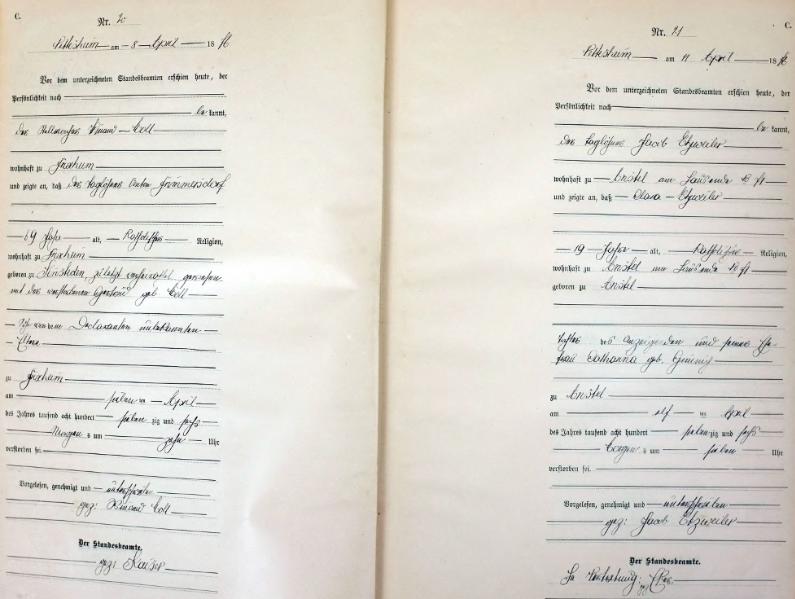 C.
Nr. 20
am 8 April 1876
Vor dem unterzeichneten Standesbeamten erschien heute, der
Persönlichkeit nach
be kannt,
wohnhaft zu Frixheim
und zeigte an, daß der Anton
69 Jahr alt, Religion,
wohnhaft zu Frixheim
geboren zu zuletzt verheirathet gewesen
mit der verstorbenen geb.
Declaranten unbekannten
Eltern
zu Frixheim
am sieben ten April
des Jahres tausend acht hundert sieben zig und sechs
Morgens um zehn Uhr
verstorben sei.
Vorgelesen, genehmigt und unterschrieben
gez:
Der Standesbeamte.
gez: Kaiser
C.
Nr. 21
am 11 April 1876
Vor dem unterzeichneten Standesbeamten erschien heute, der
Persönlichkeit nach
be kannt,
der Taglöhner Jacob Etzweiler
wohnhaft zu Anstel
und zeigte an, daß Clara Etzweiler
19 Jahr alt, Religion,
wohnhaft zu Anstel
geboren zu Anstel
Tochter des Anzeigenden und seiner Ehe-
frau Catharina geb.
zu Anstel
am elf ten April
des Jahres tausend acht hundert sieben zig und sechs
Morgens um sieben Uhr
verstorben sei.
Vorgelesen, genehmigt und unterschrieben
gez: Jacob Etzweiler
Der Standesbeamte.
In Vertretung: